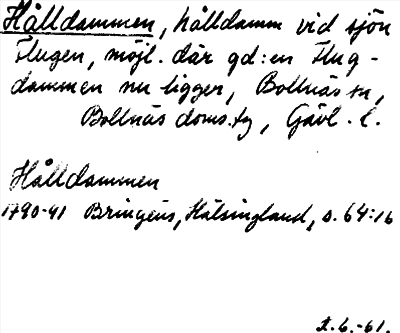 Hålldammen, hålldamm vid sjön
Flugen, möjl. där gd:en Flug-
dammen nu ligger, Bollnäs sn,
Bollnäs doms.ty, Gävl. l.
Hålldammen
1790-91 Bringéus, Hälsingland, s. 64:16
2.6.-61.